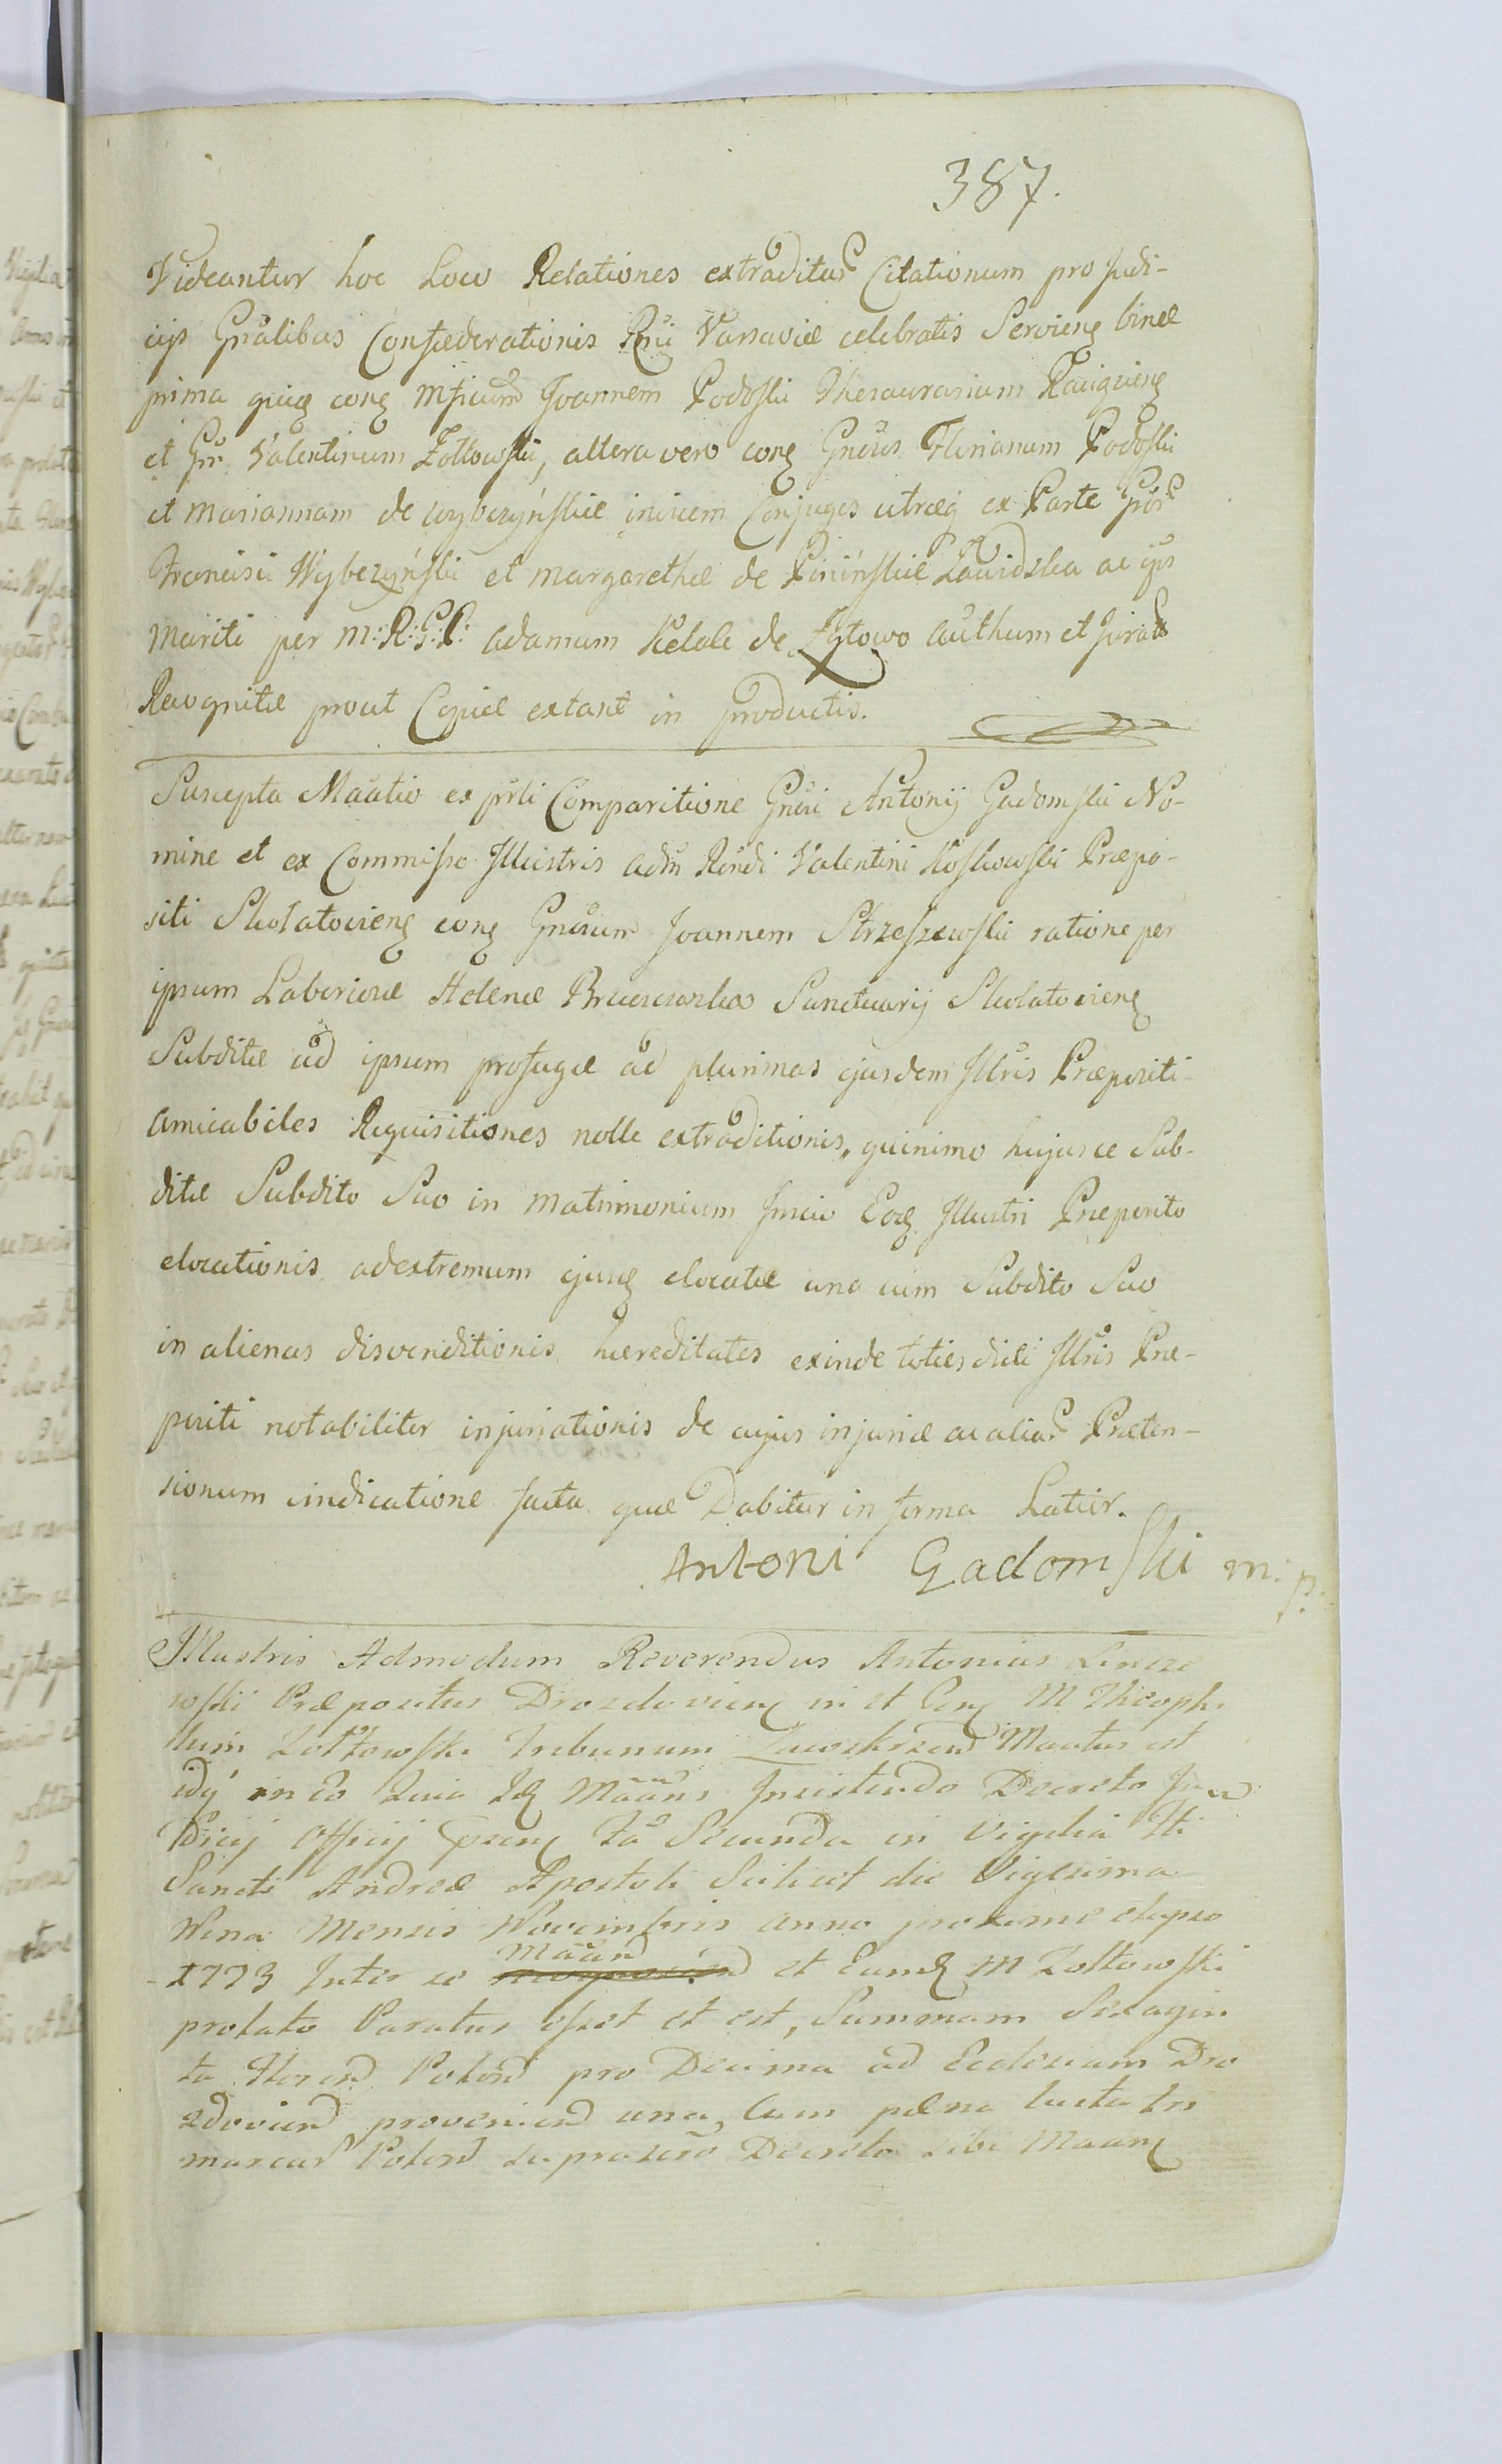 387.
Videantur hoc Loco Relationes extraditar Citationum pro Judi-
cijs Gnalibus Confæderationis Rni Varsaviæ celebratis Servien binæ
prima quid con Mficum Joannem Podoski Thesaurarium
et Gn. Valentinum Żołtowski, altera vero con Gnosus Florianum Podoski
et Mariannam de Wybczyńskie invicem Conjuges utræq ex Parte Gnor
Francisci Wybczyński et Margarethæ de Pinińskie ac ejus
Mariti per M: R: G: P: Adamum Kekole de Żytowo authum et Jurat
Recognitæ prout Copiæ extant in productis.
Suscepta Maatio ex prsti Comparitione Gnosi Antonij Gadomski No-
mine et ex Commisso Illustris adm Rendi Valentini Koskowski Præpo-
siti Skołatovien con Gnosum Joannem Strzeszewski ratione per
ipsum Laboriosæ Helenæ Sanctuarij Skołatovien
Subditæ ad ipsum profugæ ad plurimas ejusdem Illris Præpositi
amicabiles Requisitiones nolle extraditionis, quinimo hujusce Sub-
ditæ Subdito Suo in Matrimonium Inscio Eod Illustri Præposito
elocationis adextremum ejusd elocatæ una cum Subdito Suo
in alienas disvenditionis hæreditates exinde toties dicti Illris Præ-
positi notabiliter injuriationis de cujus injuriæ ac aliar Præten-
sionum vindicatione facta quæ Dabitur in forma Latior.
Antoni Gadomski m. p.
Illustris Admodum Reverendus Antonius
wski Præpositus Drozdovien in et Con M Theophi
lum Żołtowski Tribunum Zawskrzen Maatus est
idq in eo Quia Id Maans Insistendo Decreto
Officij Fa Secunda in Vigilia Fti
Sancti Andreæ Apostoli Scilicet die Vigesima
Nona Mensis Novembris anno proxime elapso
1773 Inter eo Maan et Eund M Żołtowski
prolato Paratus esset et est, Summam Sexagin
ta Floren Polon pro Decima ad Ecclesiam Dro
zdovien provenien una, Cum pæna lucta tri
marcar Polon Decreto sibi Maan